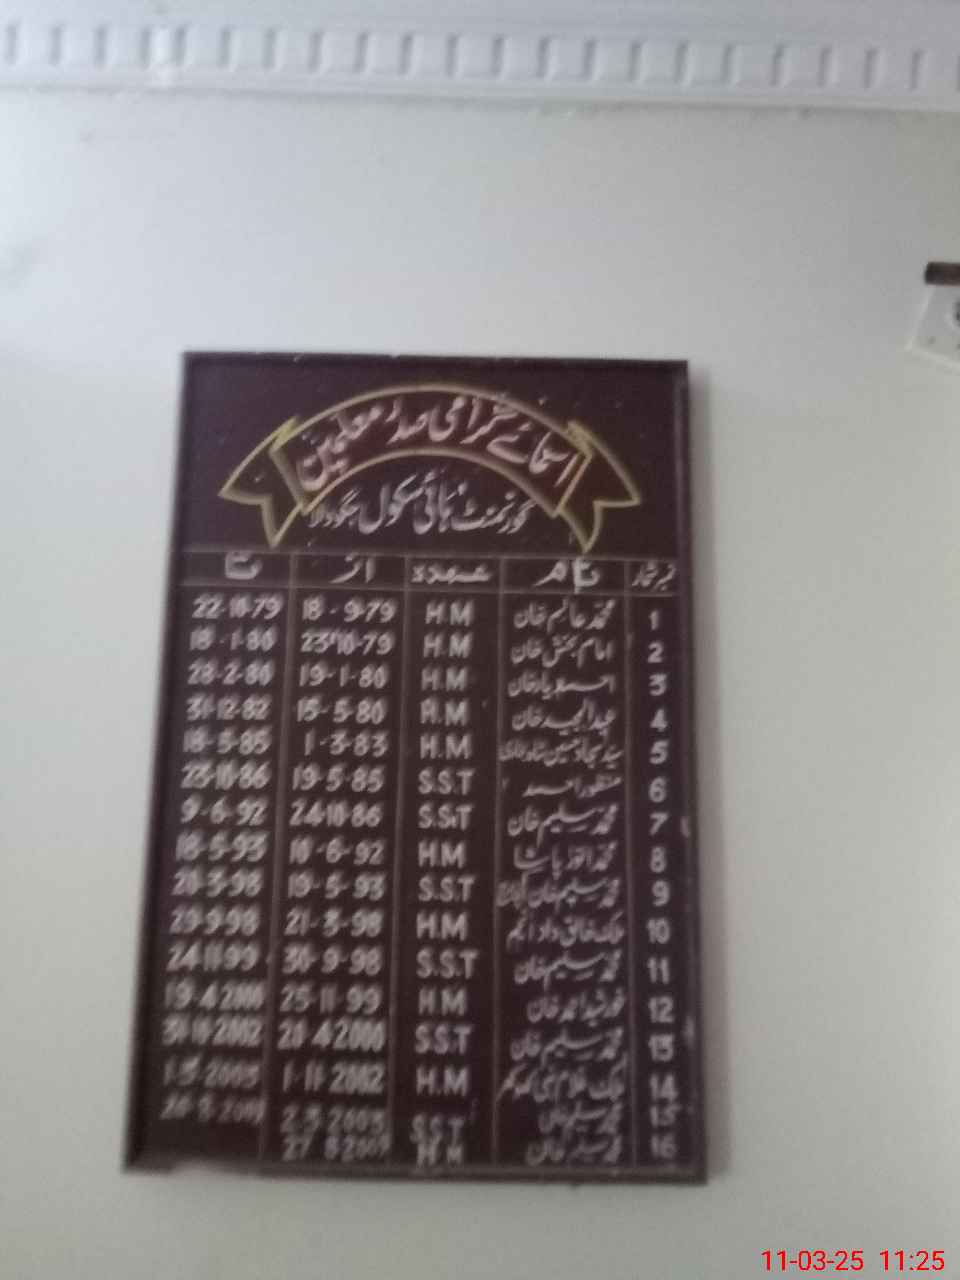 اسمائے گرامی صدر معلمین
گورنمنٹ ہائی سکول
نمبر شمار نام عہدہ از تا
1 محمد عالم خان H.M 18-9-79 22-10-79
2 امام بخش خان H.M 23-10-79 18-1-80
3 احمد یار خان H.M 19-1-80 28-2-80
4 عبدالمجید خان H.M 15-5-80 31-12-82
5 سید سجاد حسین شاہ H.M 1-3-83 18-5-85
6 منظور احمد S.S.T 19-5-85 23-10-86
7 محمد سلیم خان S.S.T 24-10-86 9-6-92
8 محمد انور پاشا H.M 10-6-92 18-5-93
9 محمد سلیم خان S.S.T 19-5-93 20-3-98
10 ملک خالق داد انجم H.M 21-3-98 29-9-98
11 محمد سلیم خان S.S.T 30-9-98 24-11-99
12 خورشید احمد خان H.M 25-11-99 19-4-2000
13 محمد سلیم خان S.S.T 20-4-2000 31-10-2002
14 ملک غلام نبی H.M 1-11-2002 1-3-2003
15 محمد سلیم خان S.S.T 2-3-2003
16 محمد خان H.M 27-8-2007
11-03-25 11:25